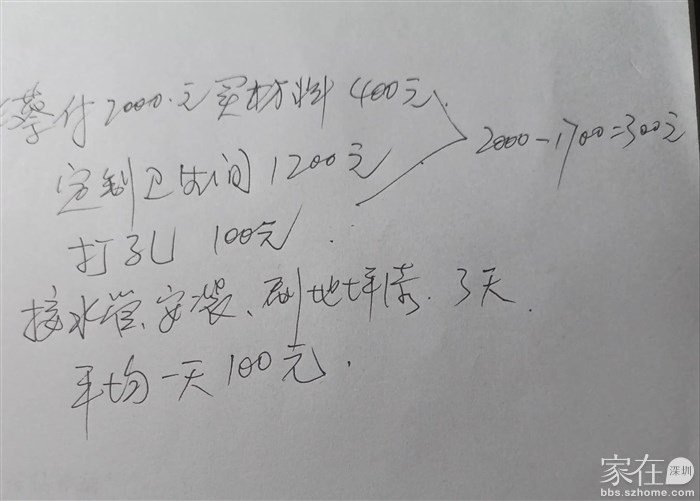 蔡付2000.元买材料400元
2000-1700=300元
定制卫生间1200元
打孔100元.
接水管、安装、刷地坪漆.3天.
平均一天100元.
家在深圳
bbs.szhome.com